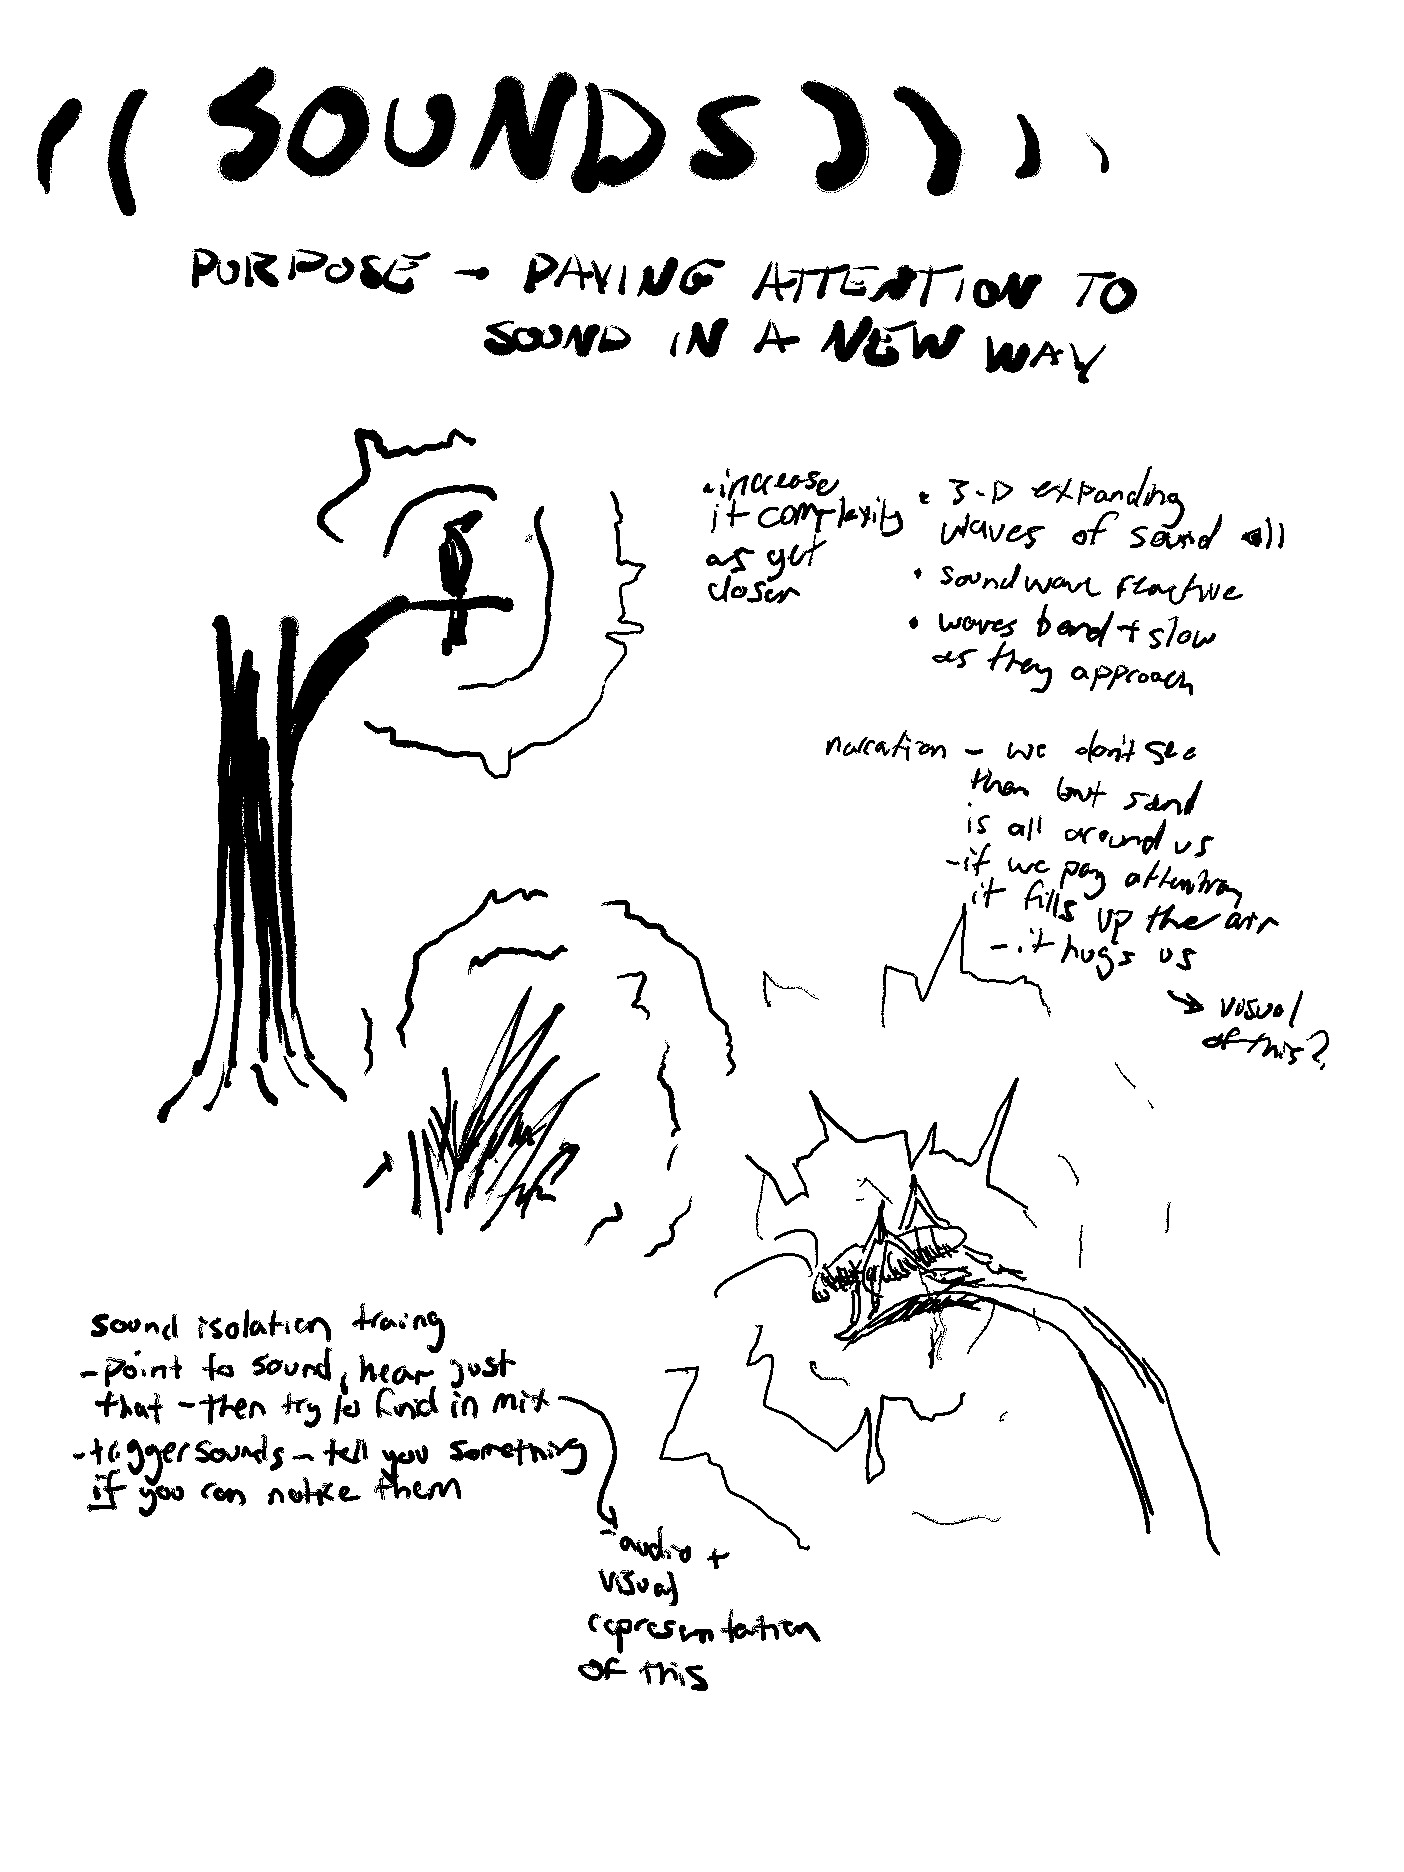 ((SOUNDS))))
PURPOSE - PAYING ATTENTION TO
SOUND IN A NEW WAY
• increase
it complexity
as get
closer
• 3-D expanding
waves of sound
• soundwave
• waves bend + slow
as they approach
narration - we don't see
them but sound
is all around us
- if we pay attention
it fills up the air
- it hugs us
→ visual
of this?
sound isolation traing
- point to sound, hear just
that - then try to find in mix
- trigger sounds - tell you something
if you can notice them
- audio +
visual
representation
of this